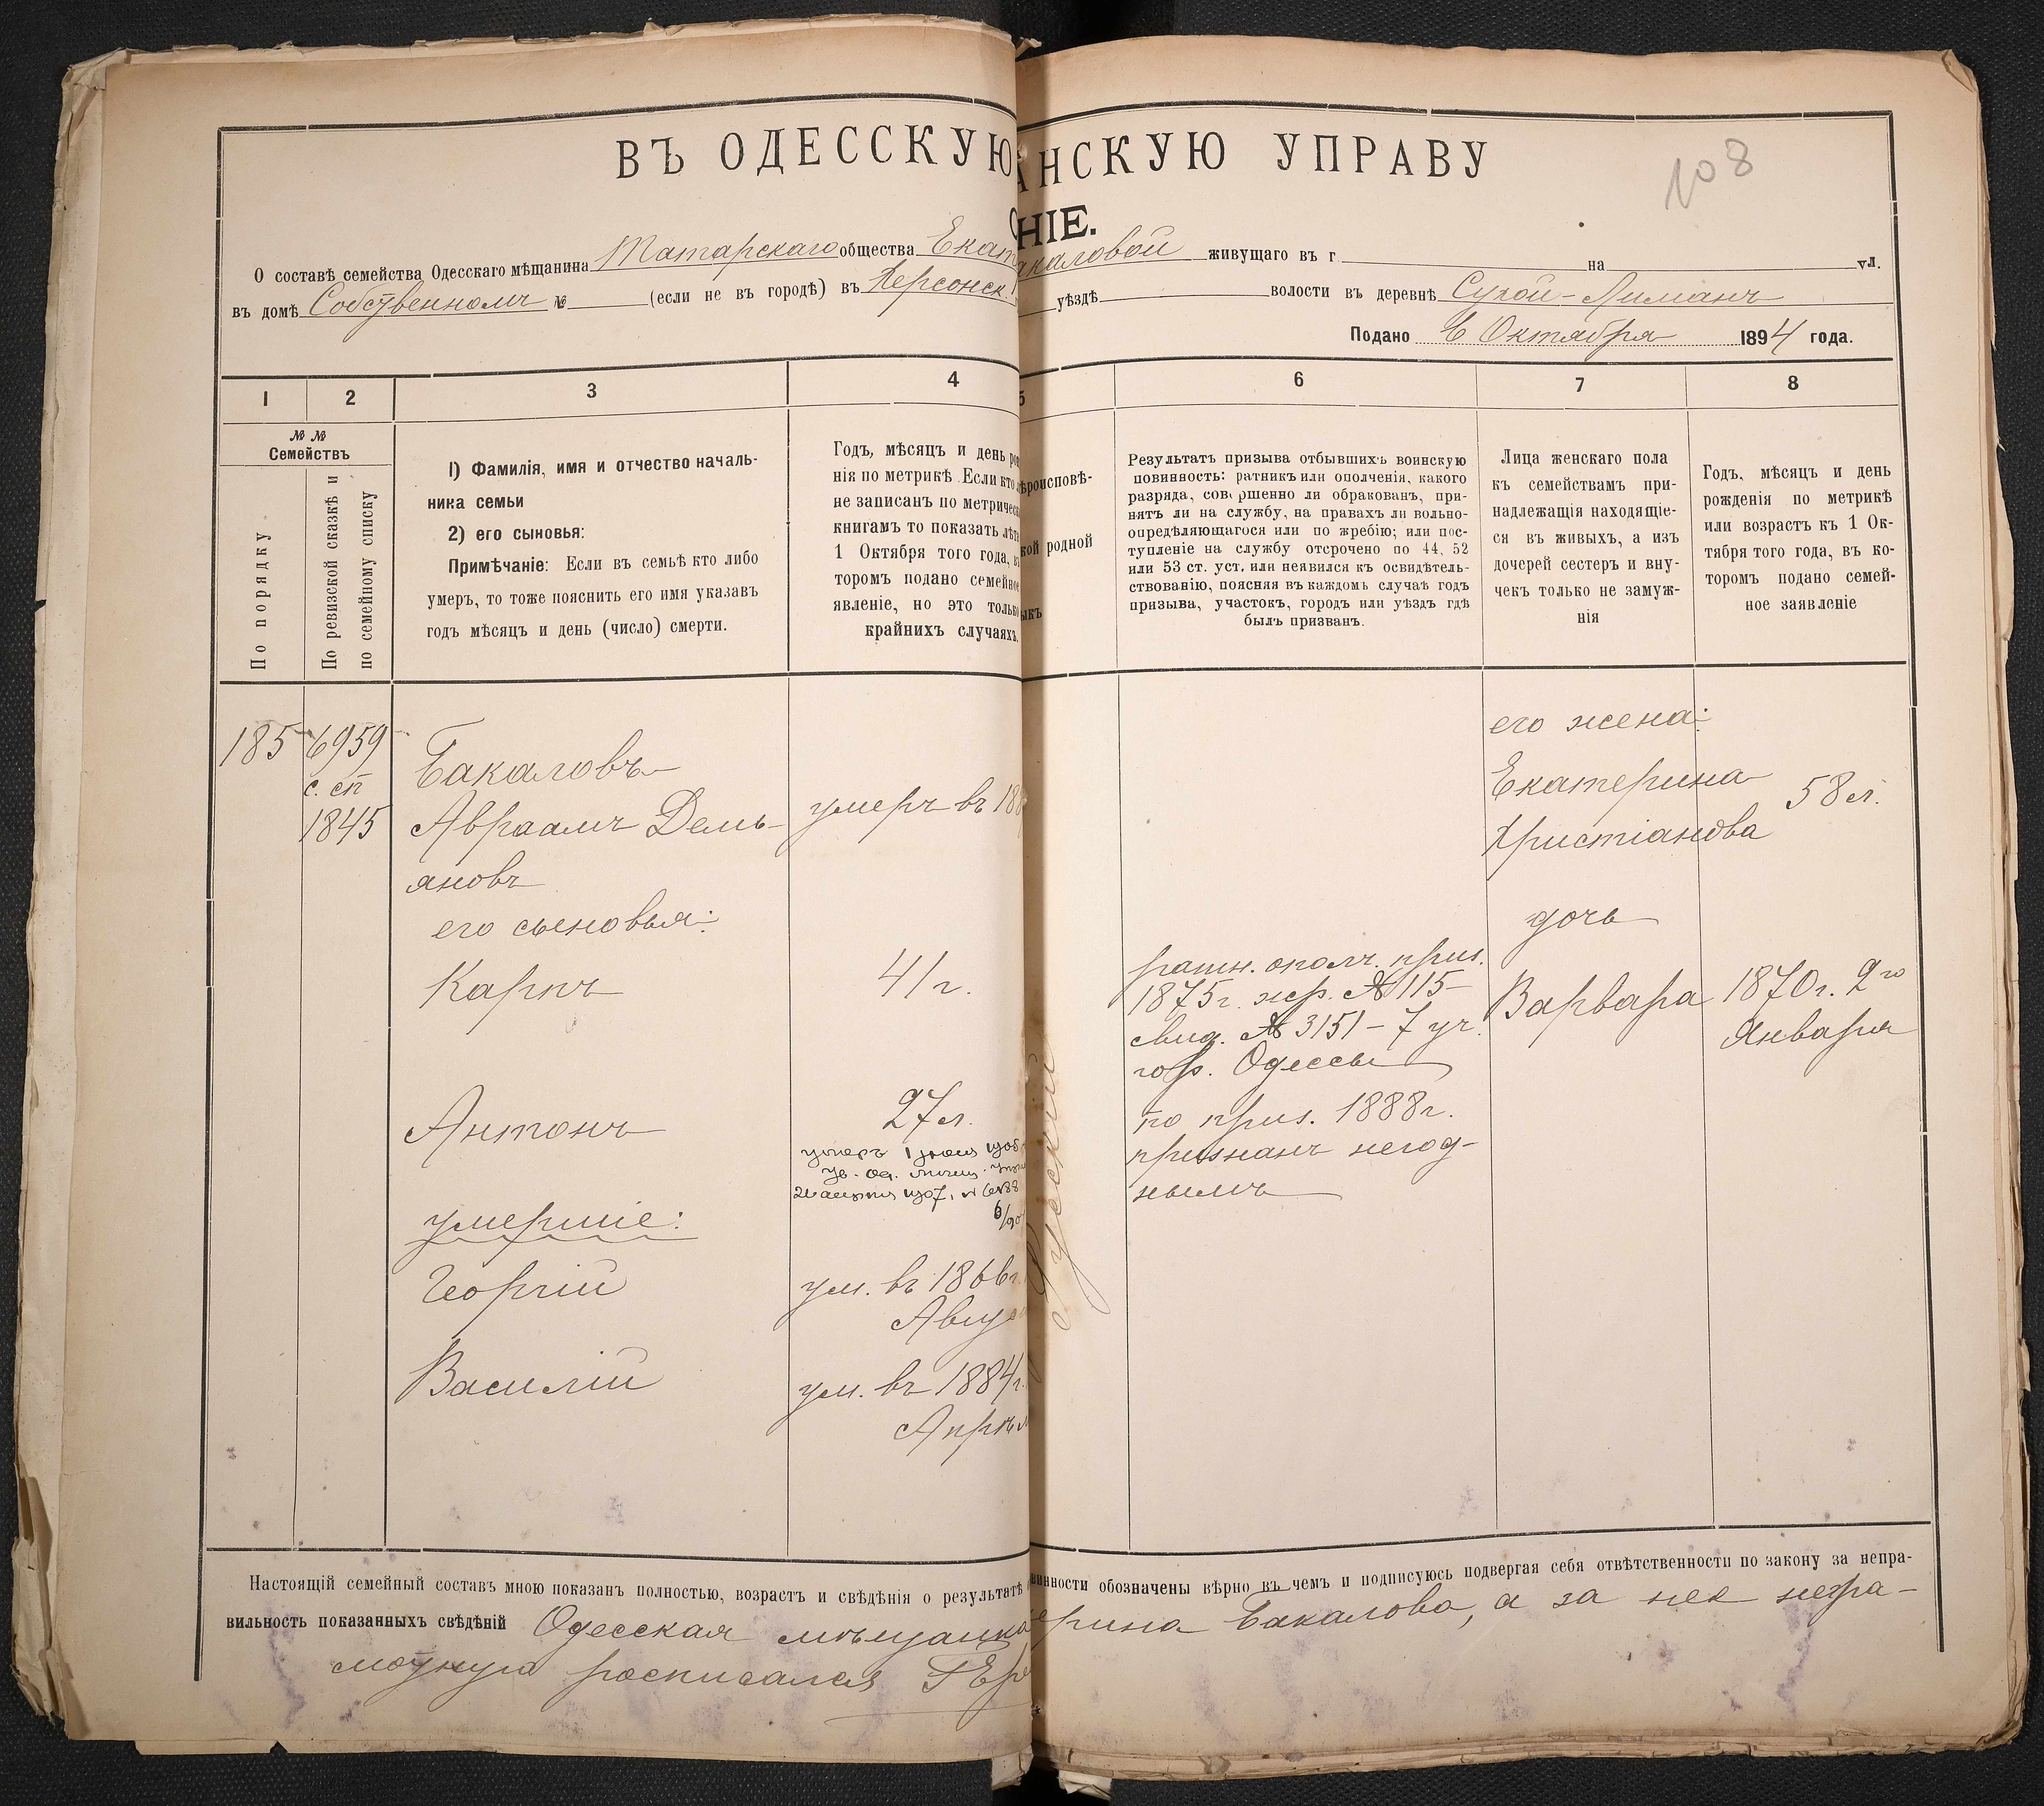 108
ВЪ ОДЕССКУЮ АНСКУЮ УПРАВУ
НІЕ.
О составѣ семейства Одесскаго мѣщанина Татарскаго общества Екат каловой живущаго въ г. на ул.
въ домѣ Собственномъ № (если не въ городѣ) въ Херсонск. уѣздѣ волости въ деревнѣ Сухой-Лиманъ
Подано 6 Октября 1894 года.
1 2 3 4 5 6 7 8
№ №
Семействъ
По порядку
По ревизской сказкѣ и
по семейному списку
1) Фамилія, имя и отчество началь-
ника семьи
2) его сыновья:
Примѣчаніе: Если въ семьѣ кто либо
умеръ, то тоже пояснить его имя указавъ
годъ мѣсяцъ и день (число) смерти.
Годъ, мѣсяцъ и день рож
нія по метрикѣ. Если кто
не записанъ по метричес
книгамъ то показать лѣта
1 Октября того года, въ
торомъ подано семейное
явленіе, но это только
крайнихъ случаяхъ.
ѣроисповѣ-
кой родной
ыкъ
Результатъ призыва отбывшихъ воинскую
повинность: ратникъ или ополченія, какого
разряда, совершенно ли обракованъ, при-
нятъ ли на службу, на правахъ ли вольно-
опредѣляющагося или по жребію; или пос-
тупленіе на службу отсрочено по 44, 52
или 53 ст. уст. или неявился къ освидѣтель-
ствованію, поясняя въ каждомъ случаѣ годъ
призыва, участокъ, городъ или уѣздъ гдѣ
былъ призванъ.
Лица женскаго пола
къ семействамъ при-
надлежащія находящіе-
ся въ живыхъ, а изъ
дочерей сестеръ и вну-
чекъ только не замуж-
нія
Годъ, мѣсяцъ и день
рожденія по метрикѣ
или возрастъ къ 1 Ок-
тября того года, въ ко-
торомъ подано семей-
ное заявленіе
185 6959
с. сп
1845
Бакаловъ
Авраамъ Демь-
яновъ
умеръ въ 188
его сыновья:
Карпъ
41 г.
Антонъ
27 л.
умеръ 1 1905
ув. Од. мѣщ.
1907,
умершіе:
Георгій
ум. въ 1866 г.
Авгус
Василій
ум. въ 1884 г.
Апрѣл
Русскій
ратн. ополч. приз.
1875 г. жр. № 115
свид. № 3151 - 7 уч.
гор. Одессы
по приз. 1888 г.
признанъ негод-
нымъ
его жена:
Екатерина
Христіанова
58 л.
дочь
Варвара
1870 г. 2 го
Января
Настоящій семейный составъ мною показанъ полностью, возрастъ и свѣдѣнія о результатѣ винности обозначены вѣрно въ чемъ и подписуюсь подвергая себя отвѣтственности по закону за непра-
вильность показанныхъ свѣдѣній Одесская мѣщанка ерина Бакалова, а за нее негра-
мотную росписался